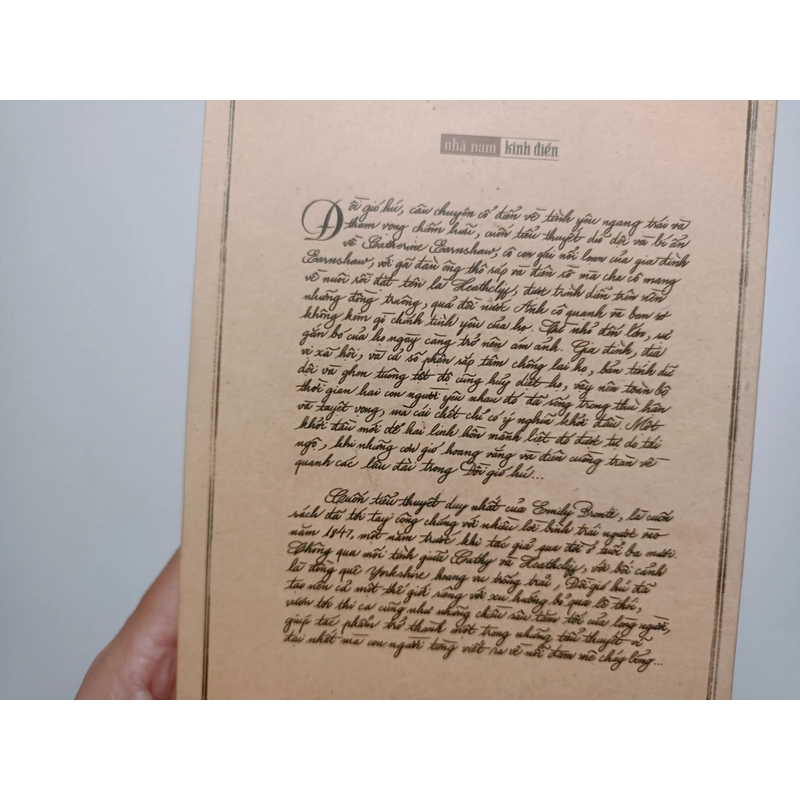 nhã nam kinh điển
Đồi gió hú, câu chuyện cổ điển về tình yêu ngang trái và
tham vọng chiếm hữu, cuốn tiểu thuyết dữ dội và bí ẩn
về Catherine Earnshaw, cô con gái nổi loạn của gia đình
Earnshaw, với gã đàn ông thô ráp và điên rồ mà cha cô mang
về nuôi rồi đặt tên là Heathcliff, được trình diễn trên nền
những đồng truông, quả đồi nước Anh cô quạnh và ban sơ
không kém gì chính tình yêu của họ. Từ nhỏ đến lớn, sự
gắn bó của họ ngày càng trở nên ám ảnh. Gia đình, địa
vị xã hội, và cả số phận rắp tâm chống lại họ, bản tính dữ
dội và ghen tuông tột độ cũng hủy diệt họ, vậy nên toàn bộ
thời gian hai con người yêu nhau đó đã sống trong thù hận
và tuyệt vọng, mà cái chết chỉ có ý nghĩa khởi đầu. Một
khởi đầu mới để hai linh hồn mãnh liệt đó được tự do tái
ngộ, khi những cơn gió hoang vắng và điên cuồng tràn về
quanh các lâu đài trong Đồi gió hú...
Cuốn tiểu thuyết duy nhất của Emily Bronte, là cuốn
sách đã tới tay công chúng với nhiều lời bình trái ngược vào
năm 1847, một năm trước khi tác giả qua đời ở tuổi ba mươi.
Thông qua mối tình giữa Cathy và Heathcliff, với bối cảnh
là đồng quê Yorkshire hoang vu trống trải, Đồi gió hú đã
tạo nên cả một thế giới riêng với xu hướng bỏ qua lề thói,
vươn tới thi ca cũng như những chiều sâu tăm tối của lòng người,
giúp tác phẩm trở thành một trong những tiểu thuyết vĩ
đại nhất mà con người từng viết ra về nỗi đam mê cháy bỏng...